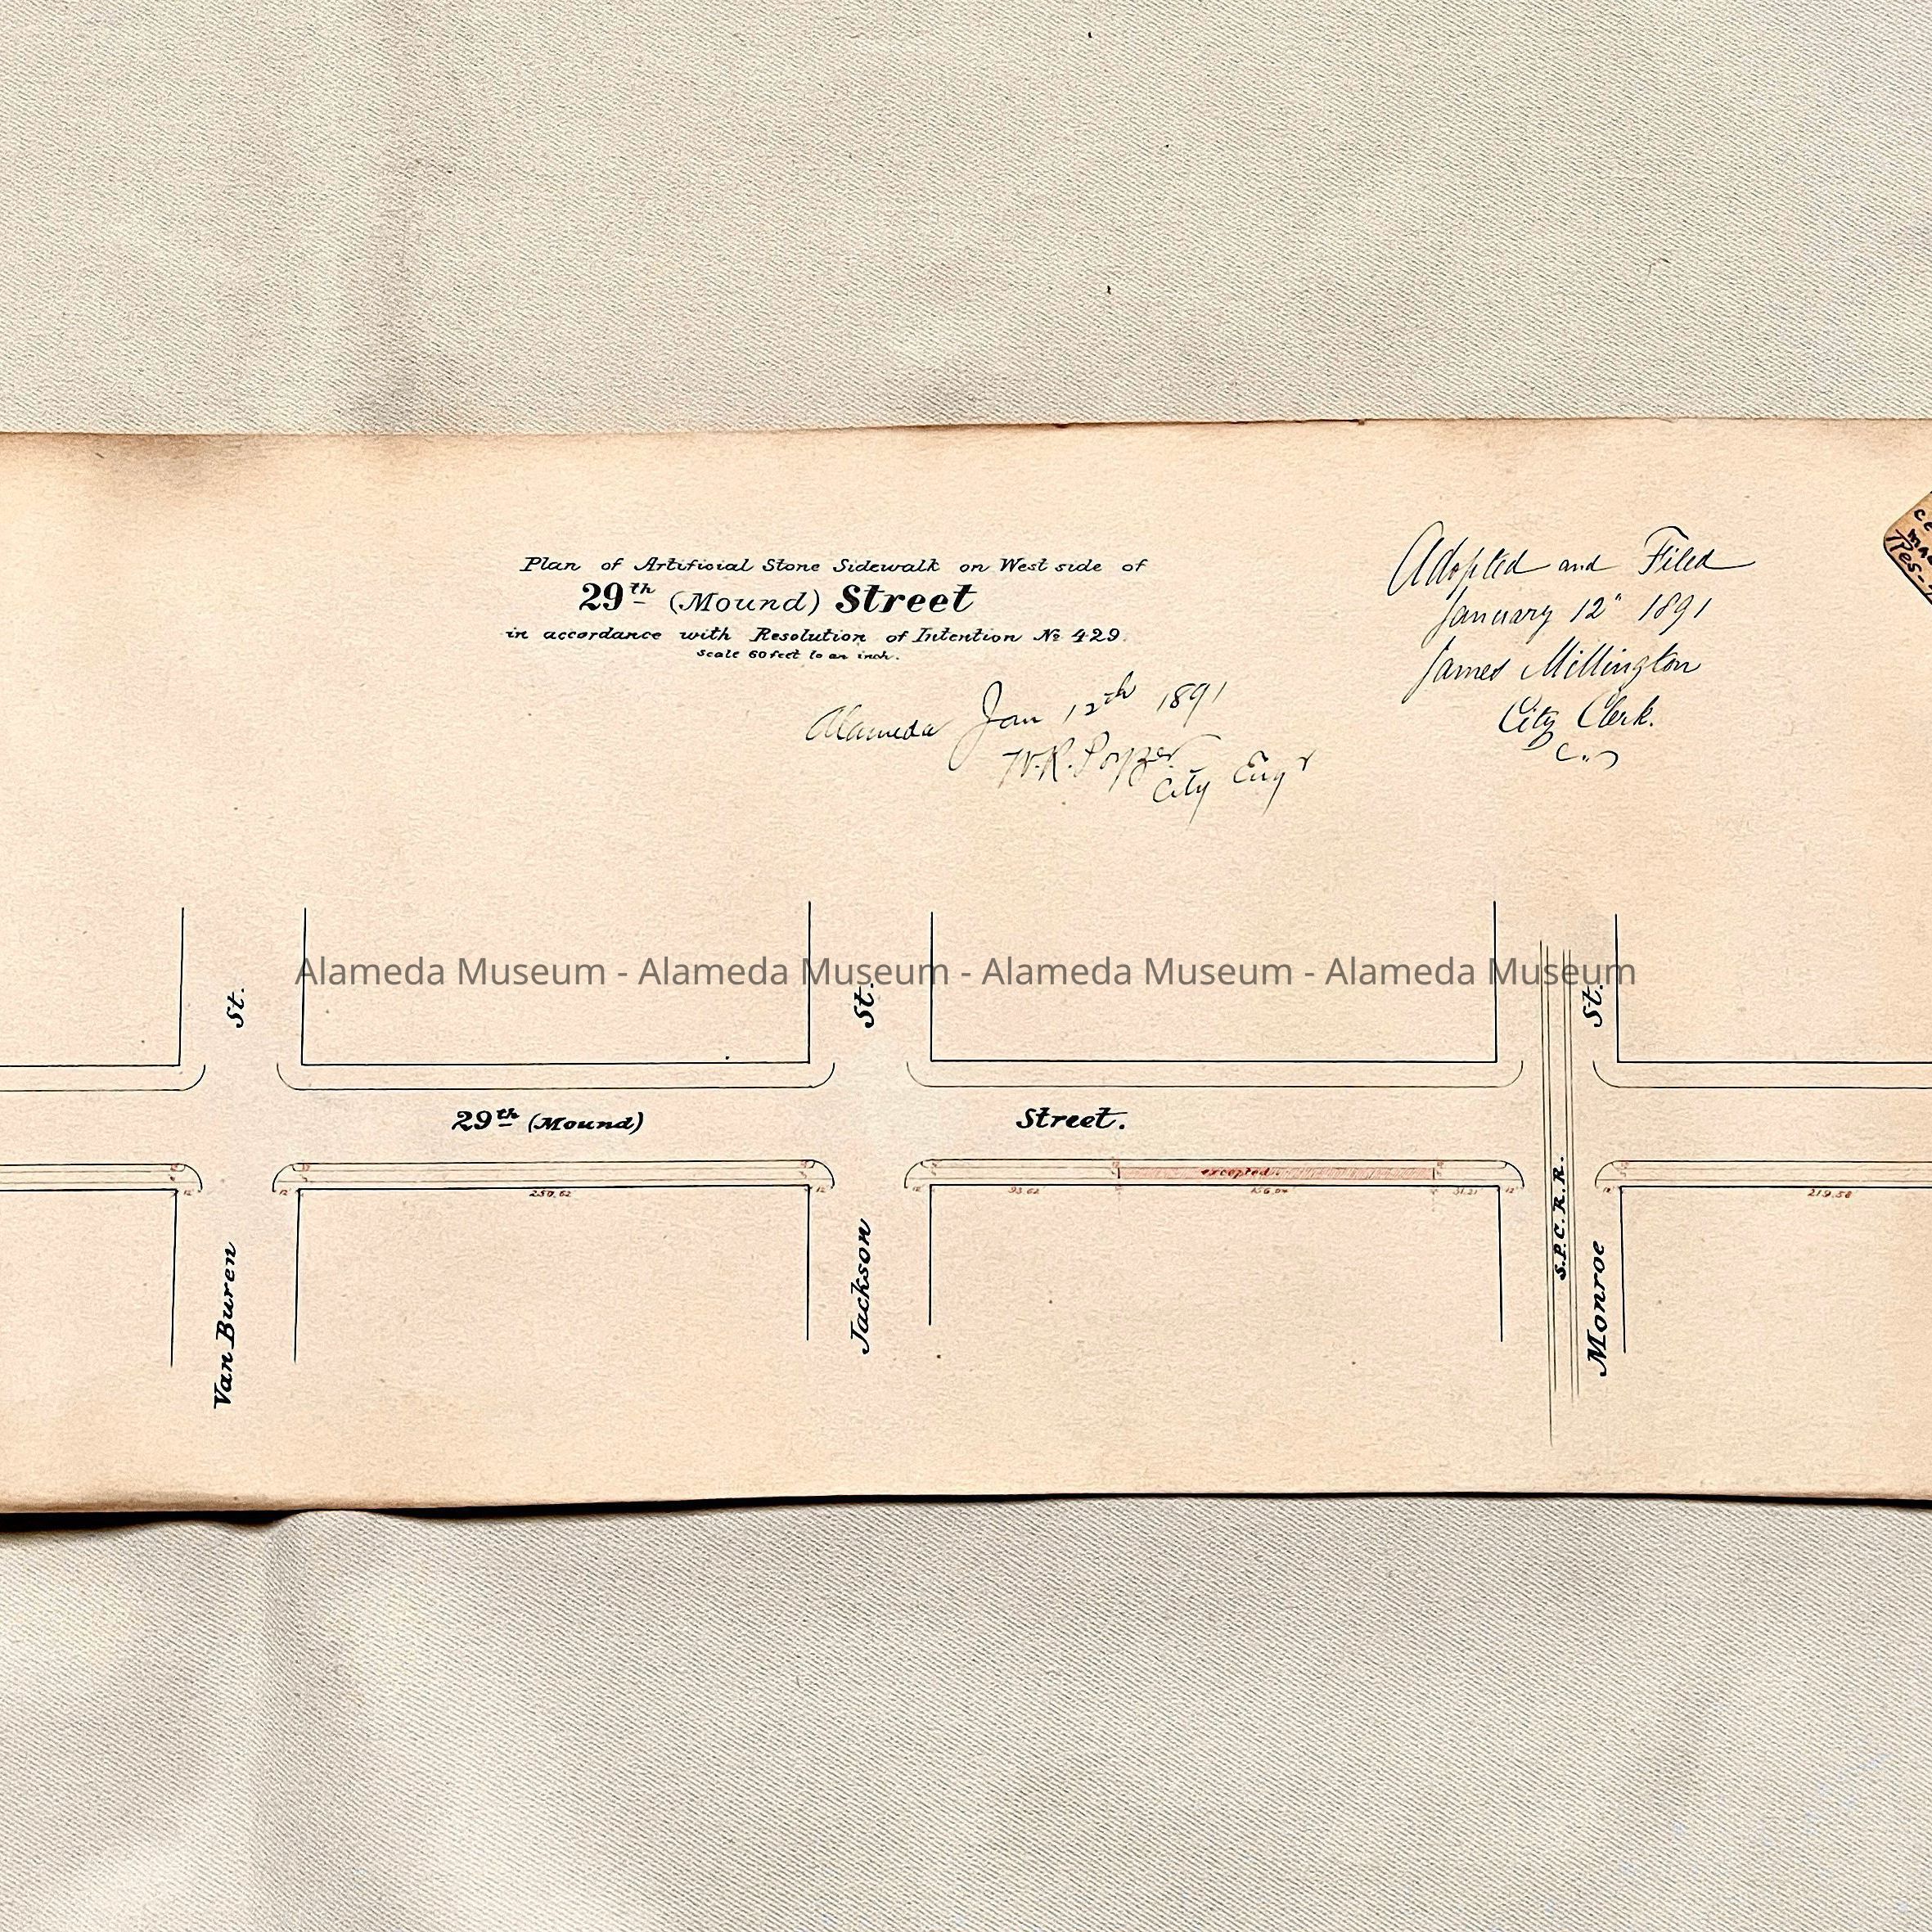 Plan of Artificial Stone Sidewalk on West side of
29th (Mound) Street
in accordance with Resolution of Intention No 429.
Scale 60 feet to an inch.
Alameda Jan 12th 1891
W.R.
City Eng'r
Adopted and Filed
January 12" 1891
James Millington
City Clerk.
Res.
Alameda Museum - Alameda Museum - Alameda Museum - Alameda Museum
St.
St.
St.
29th (Mound) Street.
excepted
12 250.62 12
12 93.62 31.21 12
12 219.58
Van Buren
Jackson
S.P.C.R.R.
Monroe